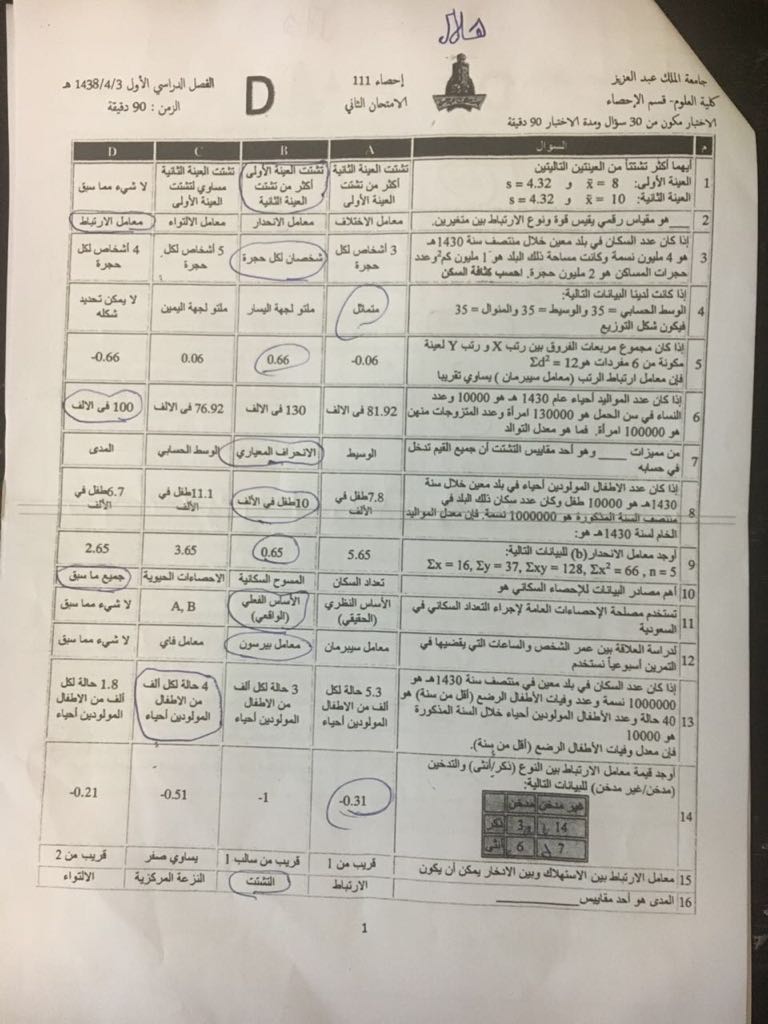 هلال
جامعة الملك عبد العزيز
كلية العلوم - قسم الإحصاء
إحصاء 111
الامتحان الثاني
D
الفصل الدراسي الأول 1438/4/3 هـ
الزمن : 90 دقيقة
الاختبار مكون من 30 سؤال ومدة الاختبار 90 دقيقة
م السؤال A B C D
1 أيهما أكثر تشتتاً من العينتين التاليتين
العينة الأولى: x̄ = 8 و s = 4.32
العينة الثانية: x̄ = 10 و s = 4.32
تشتت العينة الثانية أكثر من تشتت العينة الأولى
تشتت العينة الأولى أكثر من تشتت العينة الثانية
تشتت العينة الثانية مساوي لتشتت العينة الأولى
لا شيء مما سبق
2 ___ هو مقياس رقمي يقيس قوة ونوع الارتباط بين متغيرين.
معامل الاختلاف
معامل الانحدار
معامل الالتواء
معامل الارتباط
3 إذا كان عدد السكان في بلد معين خلال منتصف سنة 1430هـ
هو 4 مليون نسمة وكانت مساحة ذلك البلد هو 1 مليون كم² وعدد
حجرات المساكن هو 2 مليون حجرة. احسب كثافة السكن
3 أشخاص لكل حجرة
شخصان لكل حجرة
5 أشخاص لكل حجرة
4 أشخاص لكل حجرة
4 إذا كانت لدينا البيانات التالية:
الوسط الحسابي = 35 والوسيط = 35 والمنوال = 35
فيكون شكل التوزيع
متماثل
ملتو لجهة اليسار
ملتو لجهة اليمين
لا يمكن تحديد شكله
5 إذا كان مجموع مربعات الفروق بين رتب X و رتب Y لعينة
مكونة من 6 مفردات هو Σd² = 12
فإن معامل ارتباط الرتب (معامل سبيرمان ) يساوي تقريبا
-0.06
0.66
0.06
-0.66
6 إذا كان عدد المواليد أحياء عام 1430 هـ هو 10000 وعدد
النساء في سن الحمل هو 130000 امرأة وعدد المتزوجات منهن
هو 100000 امرأة. فما هو معدل التوالد
81.92 فى الالف
130 فى الالف
76.92 فى الالف
100 فى الالف
7 من مميزات ____ وهو أحد مقاييس التشتت أن جميع القيم تدخل
في حسابه
الوسيط
الانحراف المعياري
الوسط الحسابي
المدى
8 إذا كان عدد الاطفال المولودين أحياء في بلد معين خلال سنة
1430هـ هو 10000 طفل وكان عدد سكان ذلك البلد في
منتصف السنة المذكورة هو 1000000 نسمة. فإن معدل المواليد
الخام لسنة 1430هـ هو:
7.8طفل في الألف
10طفل في الألف
11.1طفل في الألف
6.7طفل في الألف
9 أوجد معامل الانحدار (b) للبيانات التالية:
Σx = 16, Σy = 37, Σxy = 128, Σx² = 66 , n = 5
5.65
0.65
3.65
2.65
10 أهم مصادر البيانات للإحصاء السكاني هو
تعداد السكان
المسوح السكانية
الاحصاءات الحيوية
جميع ما سبق
11 تستخدم مصلحة الإحصاءات العامة لإجراء التعداد السكاني في
السعودية
الأساس النظري (الحقيقي)
الأساس الفعلي (الواقعي)
A, B
لا شيء مما سبق
12 لدراسة العلاقة بين عمر الشخص والساعات التي يقضيها في
التمرين أسبوعياً نستخدم
معامل سبيرمان
معامل بيرسون
معامل فاي
لا شيء مما سبق
13 إذا كان عدد السكان في بلد معين في منتصف سنة 1430هـ هو
1000000 نسمة وعدد وفيات الأطفال الرضع (أقل من سنة) هو
40 حالة وعدد الأطفال المولودين أحياء خلال السنة المذكورة
هو 10000
فإن معدل وفيات الأطفال الرضع (أقل من سنة).
5.3 حالة لكل ألف من الاطفال المولودين أحياء
3 حالة لكل ألف من الاطفال المولودين أحياء
4 حالة لكل ألف من الاطفال المولودين أحياء
1.8 حالة لكل ألف من الاطفال المولودين أحياء
14 أوجد قيمة معامل الارتباط بين النوع (ذكر/أنثى) والتدخين
(مدخن/غير مدخن) للبيانات التالية:
غير مدخن مدخن
14 3 ذكر
7 6 أنثى
-0.31
-1
-0.51
-0.21
15 معامل الارتباط بين الاستهلاك وبين الادخار يمكن أن يكون
قريب من 1
قريب من سالب 1
يساوي صفر
قريب من 2
16 المدى هو أحد مقاييس ________
الارتباط
التشتت
النزعة المركزية
الالتواء
1